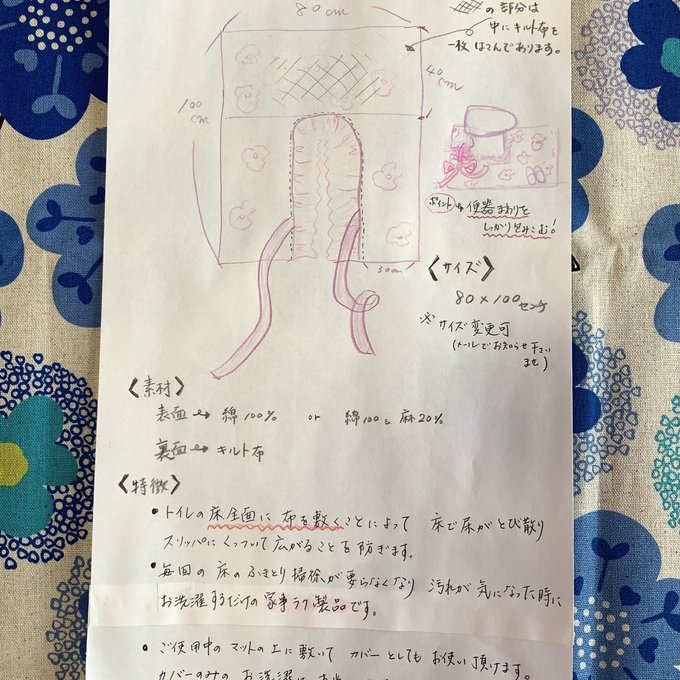 80cm
の部分は
中にキルト布を
一枚はさんであります。
100
cm
40
cm
ポイント
便器まわりを
しっかり包みこむ!
30cm
〈サイズ〉
80×100センチ
※サイズ変更可
(メールでお知らせ下さい
ませ)
〈素材〉
表面→綿100% or 綿100 麻20%
裏面→キルト布
〈特徴〉
•トイレの床全面に布を敷くことによって 床で尿がとび散り
スリッパにくっついて広がることを防ぎます。
•毎回の床のふきとり掃除が要らなくなり 汚れが気になった時に
お洗濯するだけの家事ラク製品です。
•ご使用中のマットの上に敷いてカバーとしてもお使い頂けます。
カバーのみのお洗濯